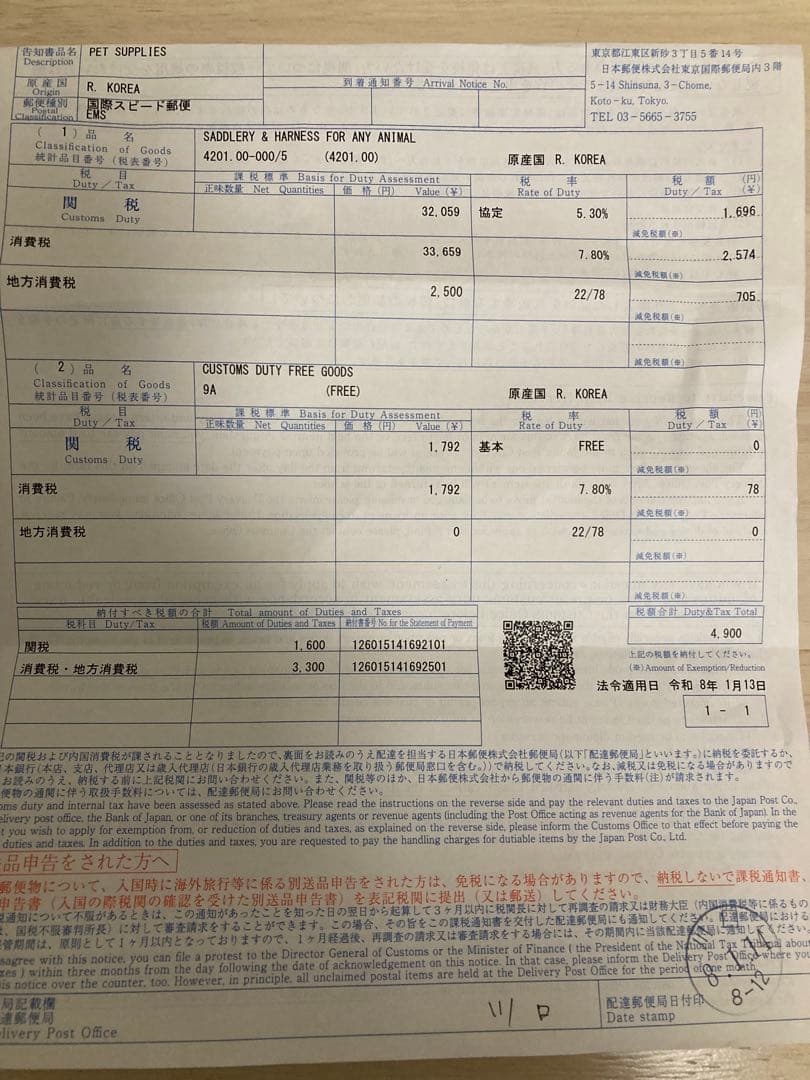 告知書品名 PET SUPPLIES
Description
原産国 R. KOREA
Origin
郵便種別 国際スピード郵便
Postal Classification EMS
到着通知番号 Arrival Notice No.
東京都江東区新砂3丁目5番14号
日本郵便株式会社東京国際郵便局内3階
5-14 Shinsuna, 3-Chome,
Koto-ku, Tokyo.
TEL 03-5665-3755
(1) 品 名 SADDLERY & HARNESS FOR ANY ANIMAL
Classification of Goods
統計品目番号(税表番号) 4201.00-000/5 (4201.00) 原産国 R. KOREA
税 目 課税標準 Basis for Duty Assessment 税 率 税 額 (円)
Duty / Tax 正味数量 Net Quantities 価 格(円) Value (¥) Rate of Duty Duty / Tax (¥)
関 税 32,059 協定 5.30% 1,696
Customs Duty 減免税額(※)
消費税 33,659 7.80% 2,574
減免税額(※)
地方消費税 2,500 22/78 705
減免税額(※)
減免税額(※)
(2) 品 名 CUSTOMS DUTY FREE GOODS
Classification of Goods
統計品目番号(税表番号) 9A (FREE) 原産国 R. KOREA
税 目 課税標準 Basis for Duty Assessment 税 率 税 額 (円)
Duty / Tax 正味数量 Net Quantities 価 格(円) Value (¥) Rate of Duty Duty / Tax (¥)
関 税 1,792 基本 FREE 0
Customs Duty 減免税額(※)
消費税 1,792 7.80% 78
減免税額(※)
地方消費税 0 22/78 0
減免税額(※)
減免税額(※)
納付すべき税額の合計 Total amount of Duties and Taxes
税科目 Duty/Tax 税額 Amount of Duties and Taxes 納付書番号 No. for the Statement of Payment
関税 1,600 126015141692101
消費税・地方消費税 3,300 126015141692501
税額合計 Duty&Tax Total
4,900
上記の税額を納付してください。
(※)Amount of Exemption/Reduction
法令適用日 令和 8年 1月13日
1 - 1
記の関税および内国消費税が課されることとなりましたので、裏面をお読みのうえ配達を担当する日本郵便株式会社郵便局(以下「配達郵便局」といいます。)に納税を委託するか、
本銀行(本店、支店、代理店又は歳入代理店(日本銀行の歳入代理店業務を取り扱う郵便局窓口を含む。))で納税してください。なお、減税又は免税になる場合がありますので
お読みのうえ、納税する前に上記税関にお問い合わせください。また、関税等のほか、日本郵便株式会社から郵便物の通関に伴う手数料(注)が請求されます。
便物の通関に伴う取扱手数料については、配達郵便局にお問い合わせください。
oms duty and internal tax have been assessed as stated above. Please read the instructions on the reverse side and pay the relevant duties and taxes to the Japan Post Co.,
elivery post office, the Bank of Japan, or one of its branches, treasury agents or revenue agents (including the Post Office acting as revenue agents for the Bank of Japan). In the
t you wish to apply for exemption from, or reduction of duties and taxes, as explained on the reverse side, please inform the Customs Office to that effect before paying the
duties and taxes. In addition to the duties and taxes, you are requested to pay the handling charges for dutiable items by the Japan Post Co., Ltd.
送品申告をされた方へ
郵便物について、入国時に海外旅行等に係る別送品申告をされた方は、免税になる場合がありますので、納税しないで課税通知書、
申告書(入国の際税関の確認を受けた別送品申告書)を表記税関に提出(又は郵送)してください。
税通知について不服があるときは、この通知があったことを知った日の翌日から起算して3ヶ月以内に税関長に対して再調査の請求又は財務大臣(内国消費税等に係るもの
は、国税不服審判所長)に対して審査請求をすることができます。この場合、その旨をこの課税通知書を交付した配達郵便局にも通知してください。配達郵便局における
管期間は、原則として1ヶ月以内となっておりますので、1ヶ月経過後、再調査の請求又は審査請求をする場合には、その期間内に当該配達郵便局に通知
isagree with this notice, you can file a protest to the Director General of Customs or the Minister of Finance ( the President of the National Tax Tribunal about
xes ) within three months from the day following the date of acknowledgment on this notice. In that case, please inform the Delivery Post Office where you
is notice over the counter, too. However, in principle, all unclaimed postal items are held at the Delivery Post Office for the period of one month.
局記載欄
達郵便局
elivery Post Office
川口
配達郵便局日付印
Date stamp
8.1.14
8-12